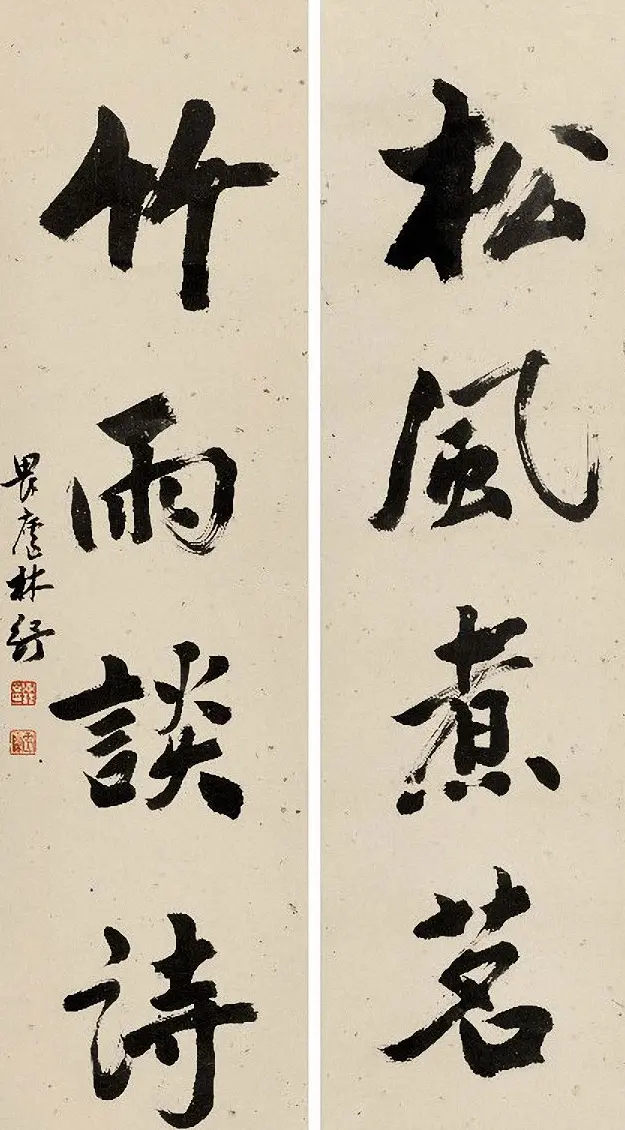 松風煮茗
竹雨談詩
畏廬林紓